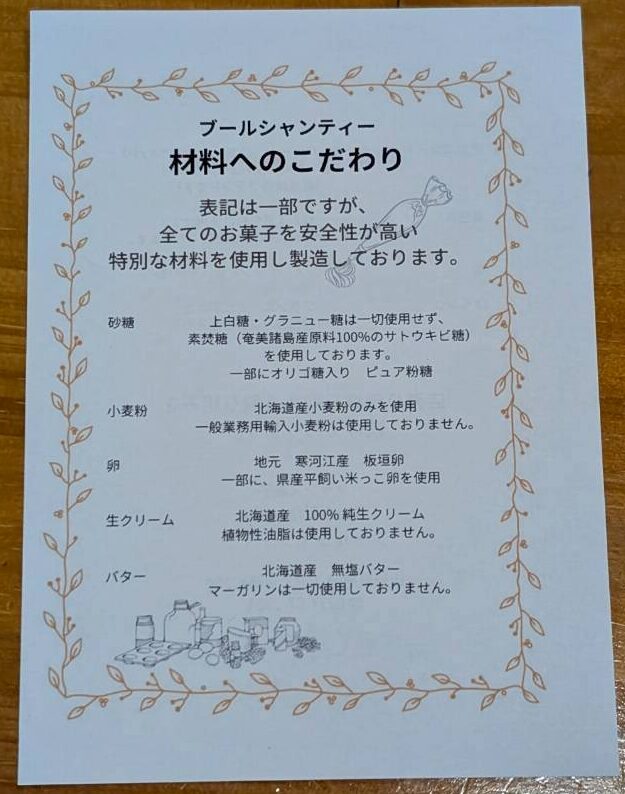 ブールシャンティー
材料へのこだわり
表記は一部ですが、
全てのお菓子を安全性が高い
特別な材料を使用し製造しております。
砂糖 上白糖・グラニュー糖は一切使用せず、
素焚糖（奄美諸島産原料100%のサトウキビ糖）
を使用しております。
一部にオリゴ糖入り ピュア粉糖
小麦粉 北海道産小麦粉のみを使用
一般業務用輸入小麦粉は使用しておりません。
卵 地元 寒河江産 板垣卵
一部に、県産平飼い米っこ卵を使用
生クリーム 北海道産 100% 純生クリーム
植物性油脂は使用しておりません。
バター 北海道産 無塩バター
マーガリンは一切使用しておりません。